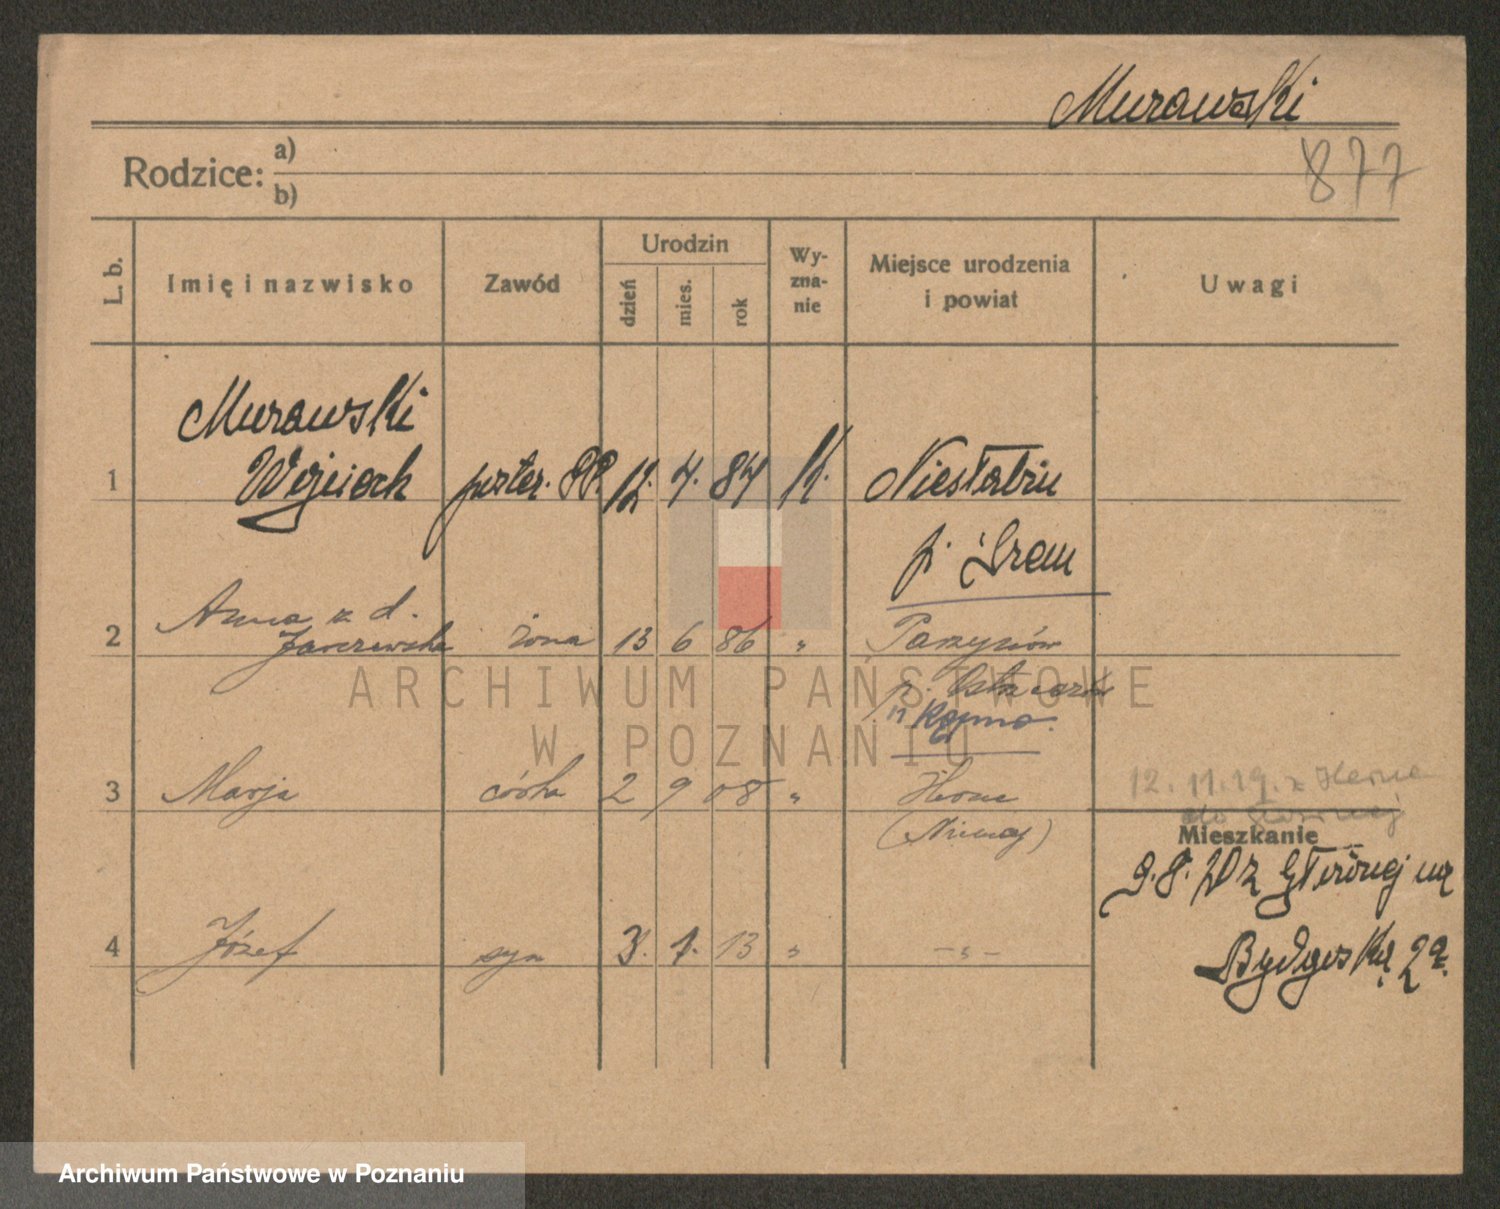 Murawski
877
Rodzice: a)
b)
L. b.
Imię i nazwisko
Zawód
Urodzin
dzień
mies.
rok
Wy-
zna-
nie
Miejsce urodzenia
i powiat
Uwagi
Murawski
1 Wojciech 12. 4. 84 k. Niesłabin
p. Śrem
Anna z d.
2 Janczewska żona 13 6 86 "
p.
p. Kępno.
3 Marja córka 2 9 08 " Herne
(Niemcy)
12. 11. 19. z Herne
do
Mieszkanie
9. 8. 20 z Głównej na
4 Józef syn 3. 1. 13 " - " -
Bydgoską 2a.
ARCHIWUM PAŃSTWOWE
W POZNANIU
Archiwum Państwowe w Poznaniu